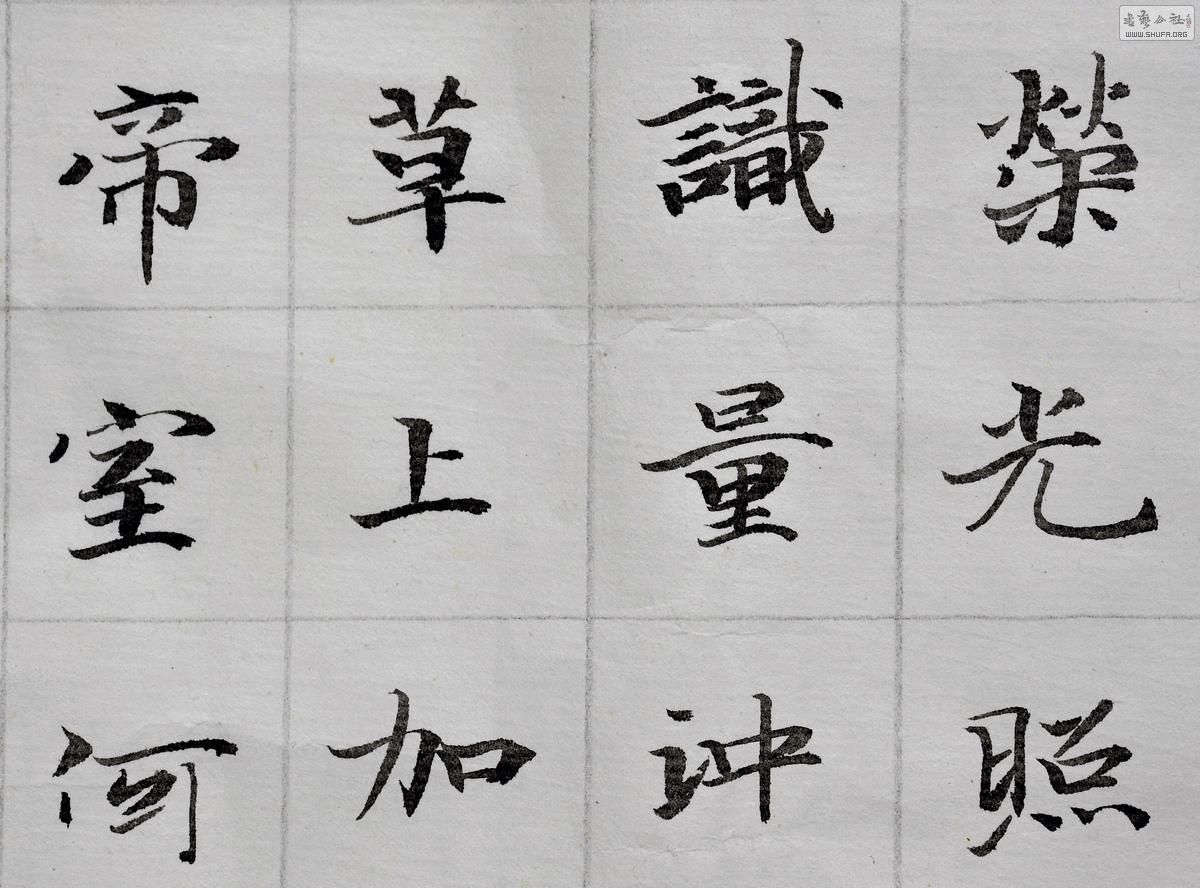 榮光照
識量沖
草上加
帝室何
書藝公社
WWW.SHUFA.ORG